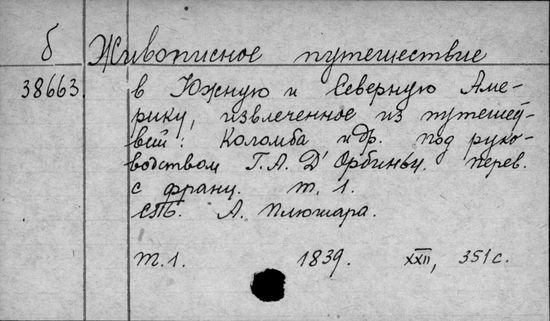 б Живописное путешествие
38663. в Южную и Северную Аме-
рику, извлеченное из путеше-
вий: Коломба и др. под руко-
водством Г. А. Д'Орбиньи. перев.
с франц. т. 1.
СПб. А. Плюшара.
Т. 1. 1839. XXII, 351 с.